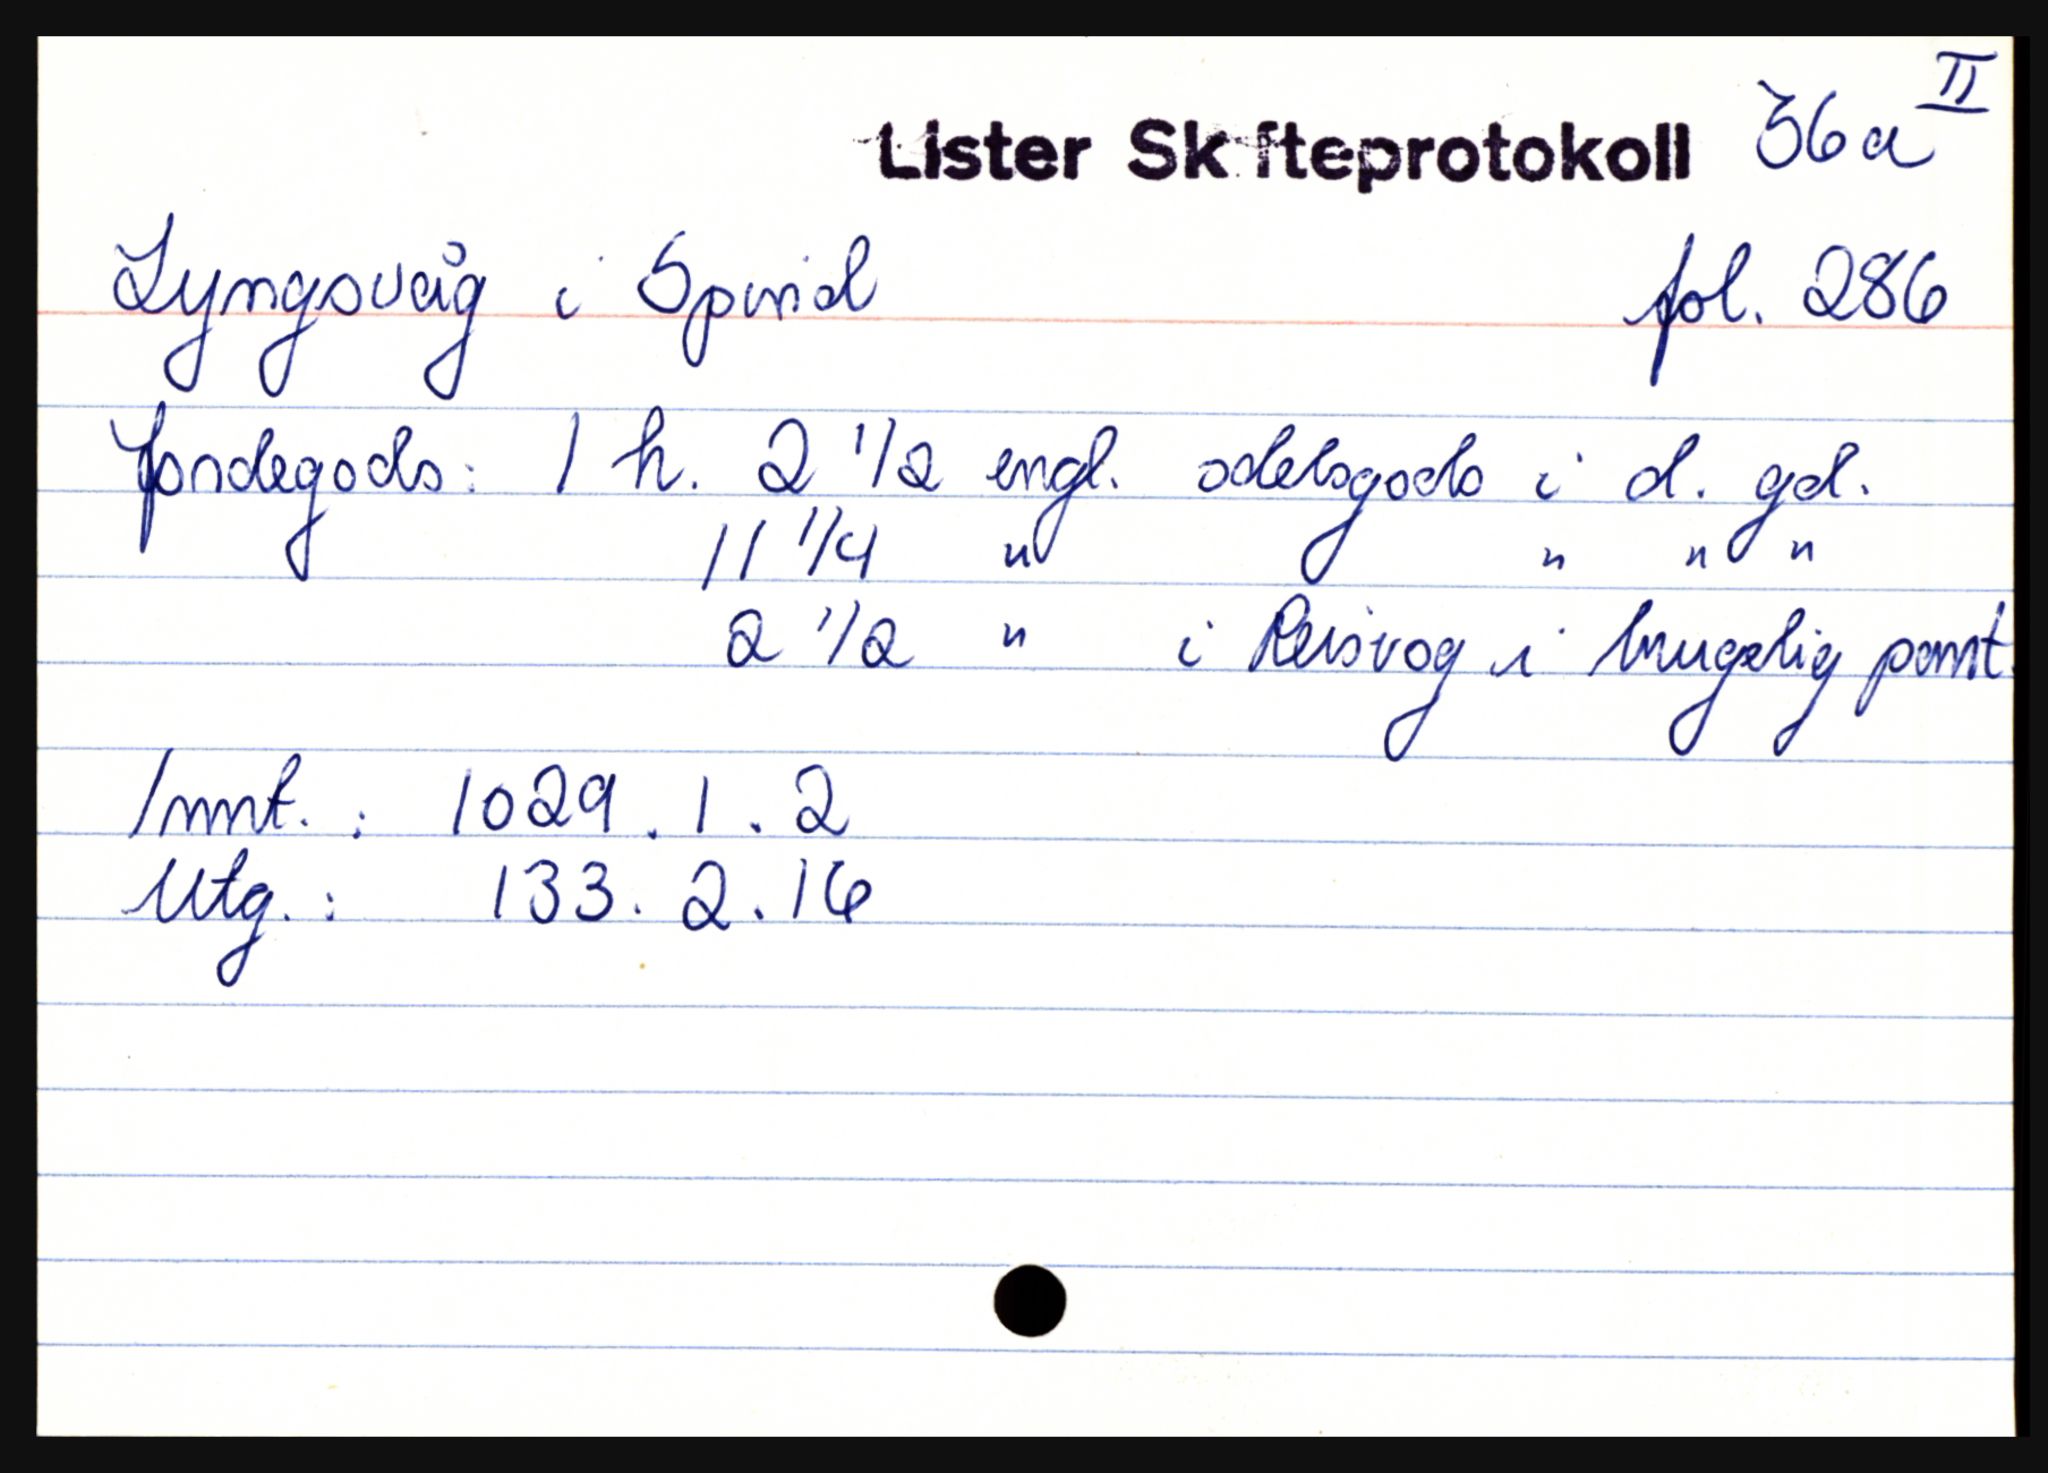 II
Lister Skifteprotokoll 36a
Lyngsvåg i Spind fol. 286
Jordegods: 1 h. 2 1/2 engl. odelsgods i d. gd.
11 1/4 " " " "
2 1/2 " i Reisvog i brugelig pant.
Innt. : 1029 . 1 . 2
Utg. : 133 . 2 . 16